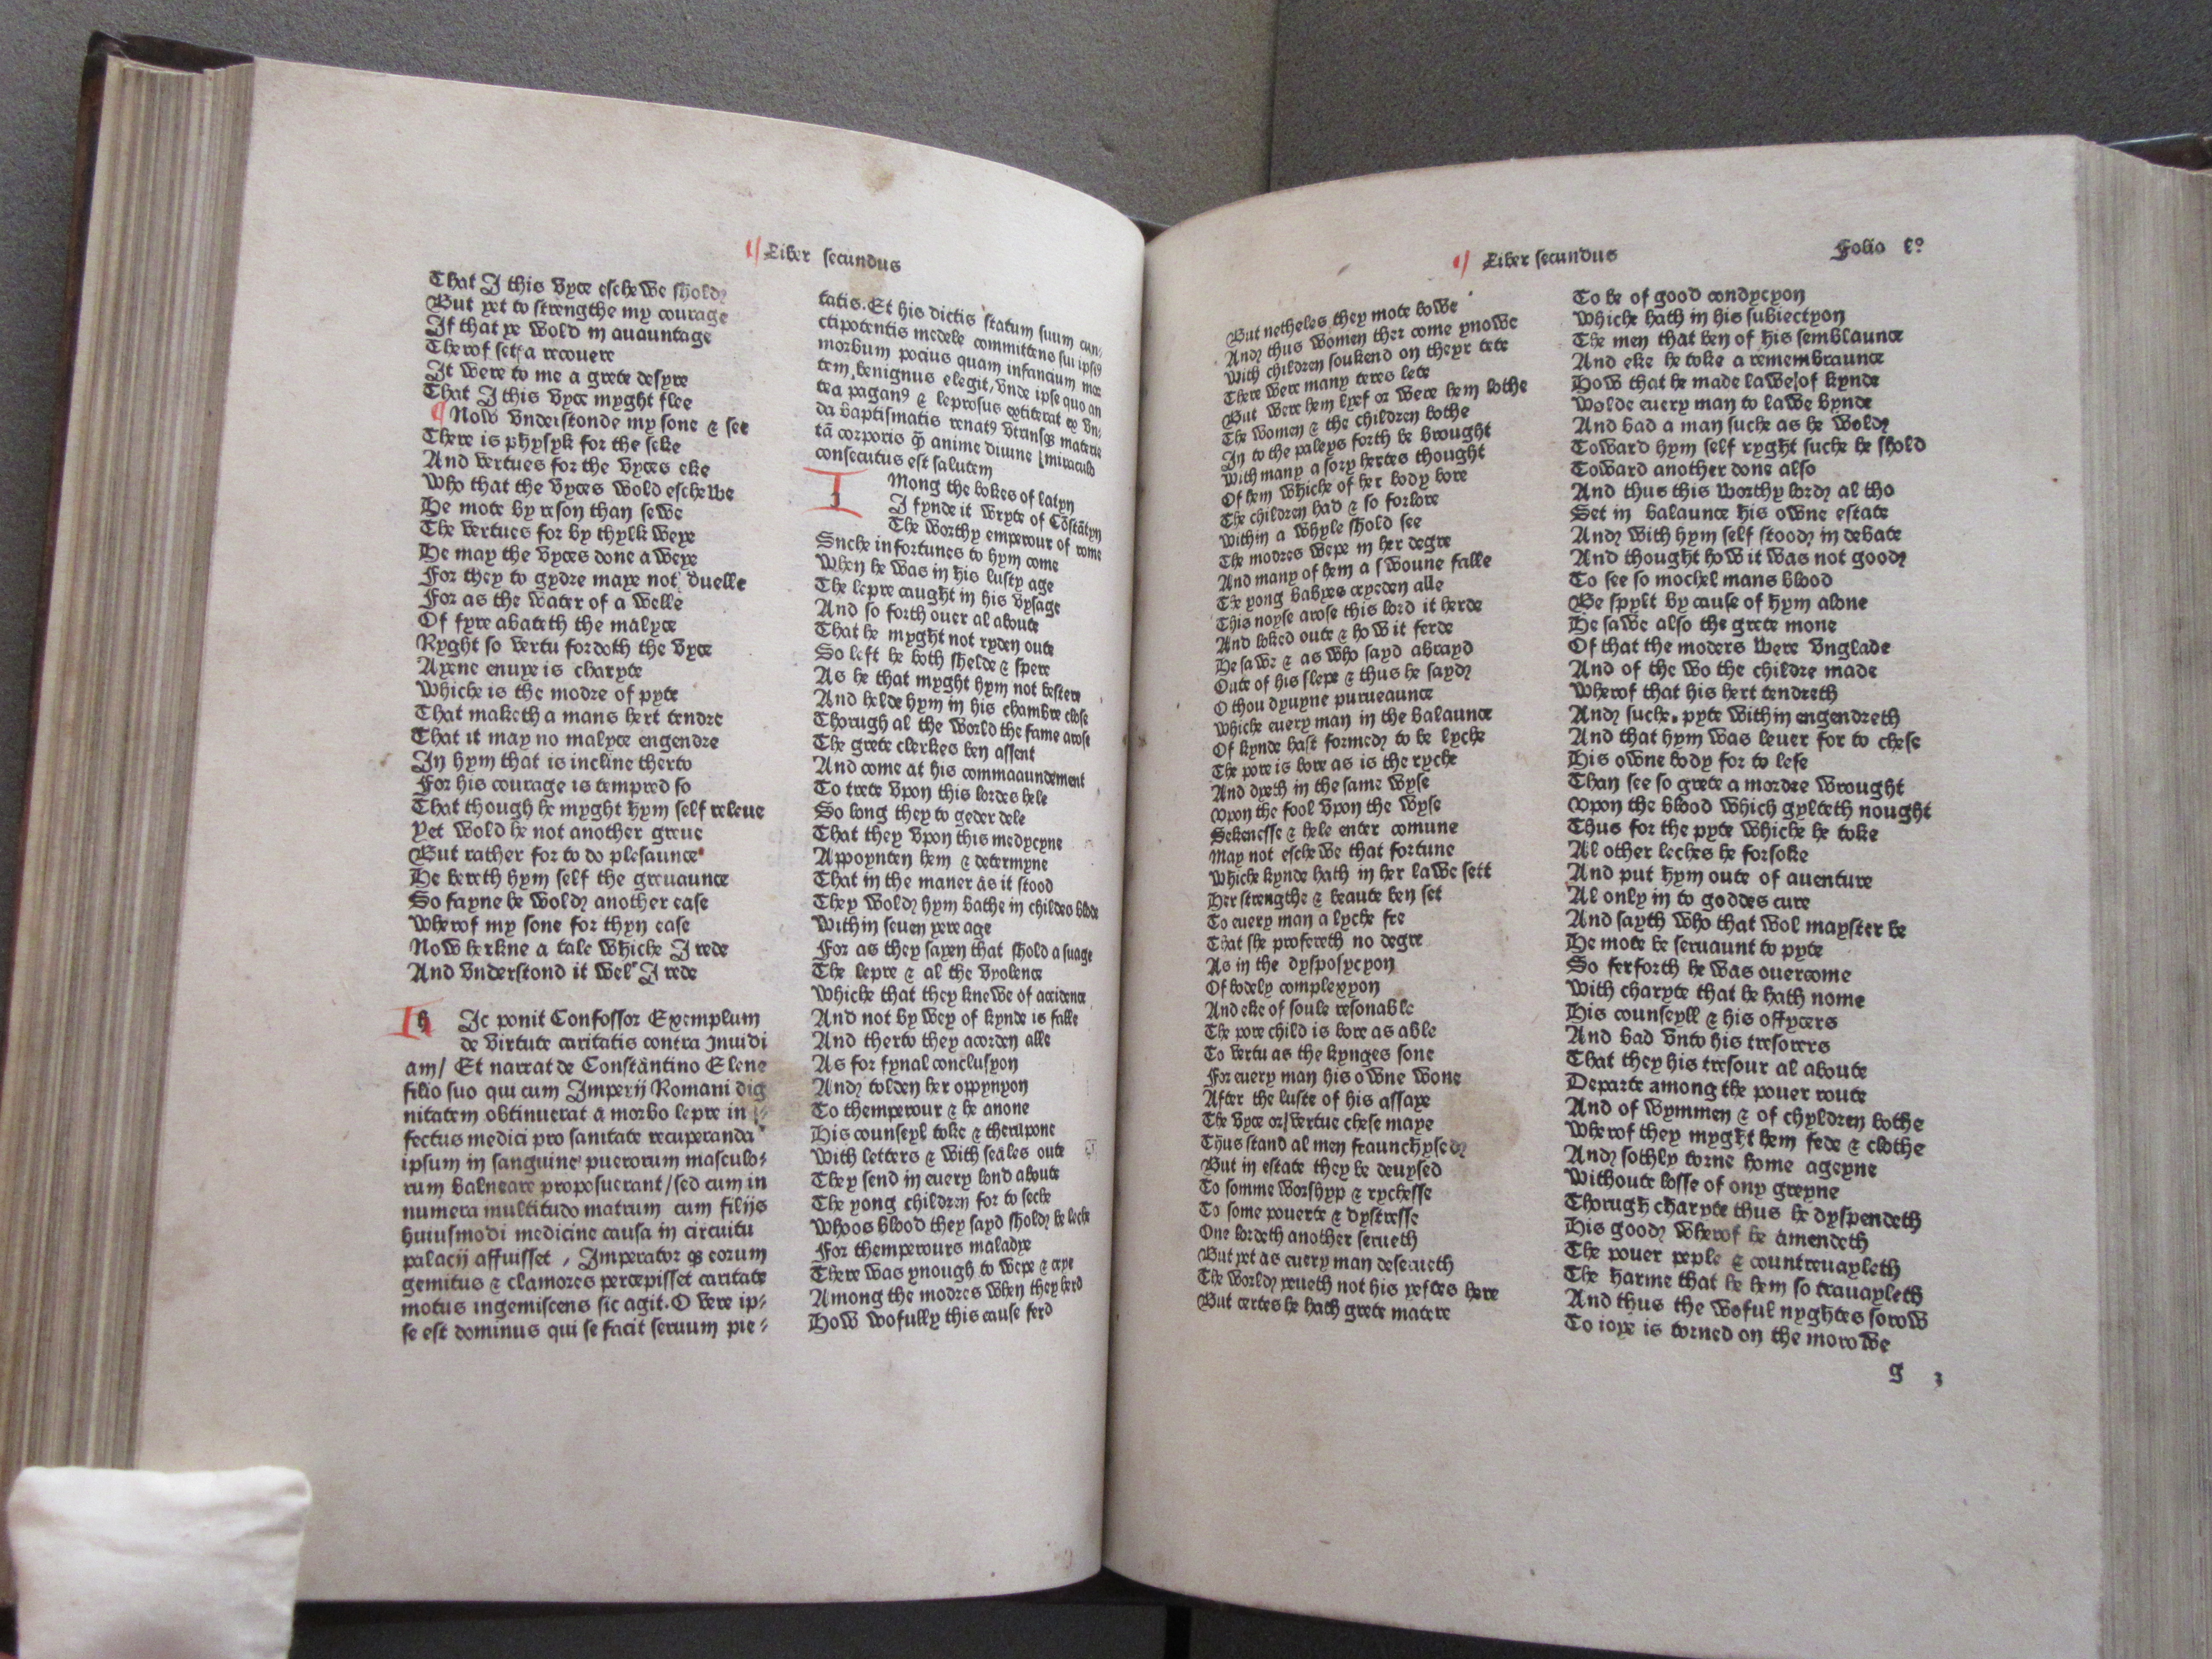 Liber secundus
That I this vyce eschewe shold
But yet to strengthe my courage
If that ye wold in auauntage
Therof sette a recouere
It were to me a grete desyre
That I this vyce myght flee
Now vnderstonde my sone & see
There is physyk for the seke
And vertues for the vyces eke
Who that the vyces wold eschewe
He mote by reson than sewe
The vertues for by thylk weye
He may the vyces done aweye
For they to gydre maye not duelle
For as the water of a welle
Of fyre abateth the malyce
Ryght so vertu fordoth the vyce
Ayene enuye is charyte
Whiche is the modre of pyte
That maketh a mans hert tendre
That it may no malyce engendre
In hym that is incline therto
For his courage is tempred so
That though he myght hym self releue
Yet wold he not another greue
But rather for to do plesaunce
He bereth hym self the greuaunce
So fayne he wold another ease
Wherof my sone for thyn ease
Now herkne a tale whiche I rede
And vnderstond it wel I rede
h Ic ponit Confossor Exemplum
de virtute caritatis contra Inuidi
am/ Et narrat de Constantino Elene
filio suo qui cum Imperij Romani dig
nitatem obtinuerat a morbo lepre in
fectus medici pro sanitate recuperanda
ipsum in sanguine puerorum masculo⸗
rum balneare proposuerant/sed cum in
numera multitudo matrum cum filijs
huiusmodi medicine causa in circuitu
palacij affuisset, Imperator qꝫ eorum
gemitus & clamores percepisset caritate
motus ingemiscens sic agit. O vere ip⸗
se est dominus qui se facit seruum pie⸗
tatis. Et his dictis statum suum cun⸗
ctipotentis medele committens sui ipsiꝰ
morbum pocius quam infancium mor
tem, benignus elegit, vnde ipse quo an
tea paganꝰ & leprosus extiterat ex vn⸗
da baptismatis renatꝰ vtriusqꝫ materie
tā corporis qꝫ̄ anime diuine [miraculo
consecutus est salutem
Mong the bokes of latyn
I fynde it wryte of Cōstātyn
The worthy emperour of rome
Snche infortunes to hym come
When he was in his lusty age
The lepre caught in his vysage
And so forth ouer al aboute
That he myght not ryden oute
So left he both shelde & spere
As he that myght hym not bestere
And helde hym in his chambre close
Thorugh al the world the fame arose
The grete clerkes ben assent
And come at his commaaundement
To trete vpon this lordes hele
So long they to geder dele
That they vpon this medycyne
Appoynten hem & determyne
That in the maner as it stood
They wold hym bathe in childes blode
Within seuen yere age
For as they sayen that shold a suage
The lepre & al the vyolence
Whiche that they knewe of accidence
And not by wey of kynde is falle
And therto they acorden alle
As for fynal conclusyon
And tolden her oppynyon
To themperour & he anone
His counseyl toke & therupone
With letters & with seales oute
They send in euery lond aboute
The yong children for to seche
Whoos blood they sayd shold be leche
For themperours maladye
There was ynough to wepe & crye
Among the modres when they herd
How wofully this cause ferd
Liber secundus
Folio lº
But netheles they mote bowe
And thus women ther come ynowe
With children soukend on theyr tete
There were many teres lete
But were hem lyef or were hem lothe
The women & the children bothe
In to the paleys forth be brought
With many a sory hertes thought
Of hem whiche of her body bore
The children had & so forlore
Within a whyle shold see
The modres wepe in her degre
And many of hem a swoune falle
The yong babyes cryeden alle
This noyse arose this lord it herde
And loked oute & how it ferde
He sawe & as who sayd abrayd
Oute of his slepe & thus he sayd
O thou dyuyne purueaunce
Whiche euery man in the balaunce
Of kynde hast formed to be lyche
The pore is bore as is the ryche
And dyeth in the same wyse
Vpon the fool vpon the wyse
Sekenesse & hele enter comune
May not eschewe that fortune
Whiche kynde hath in her lawe sett
Her strengthe & beaute ben set
To euery man a lyche fre
That she profereth no degre
As in the dysposycyon
Of bodely complexyon
And eke of soule resonable
The pore child is bore as able
To vertu as the kynges sone
For euery man his owne wone
After the luste of his assaye
The vyce or/vertue chese maye
Thus stand al men fraunchysed
But in estate they be deuysed
To somme worshyp & rychesse
To some pouerte & dystresse
One lordeth another serueth
But yet as euery man deserueth
The world yeueth not his yeftes here
But certes he hath grete matere
To be of good condycyon
Whiche hath in his subiectyon
The men that ben of his semblaunce
And eke he toke a remembraunce
How that he made lawe of kynde
Wolde euery man to lawe bynde
And bad a man suche as he wold
Toward hym self ryght suche he shold
Toward another done also
And thus this worthy lord al tho
Set in balaunce his owne estate
And with hym self stood in debate
And thought how it was not good
To see so mochel mans blood
Be spylt by cause of hym alone
He sawe also the grete mone
Of that the moders were vnglade
And of the wo the childre made
Wherof that his hert tendreth
And suche. pyte within engendreth
And that hym was leuer for to chese
His owne body for to lese
Than see so grete a mordre wrought
Vpon the blood which gylteth nought
Thus for the pyte whiche he toke
Al other leches he forsoke
And put hym oute of auenture
Al only in to goddes cure
And sayth who that wol mayster be
He mote be seruaunt to pyte
So ferforth he was ouercome
With charyte that he hath nome
His counseyll & his offycers
And bad vnto his tresorers
That they his tresour al aboute
Departe among the pouer route
And of wymmen & of chyldren bothe
Wherof they myght hem fede & clothe
And sothly torne home ageyne
Withoute losse of ony greyne
Thorugh charyte thus he dyspendeth
His good wherof he amendeth
The pouer peple & countreuayleth
The harme that he hem so trauayleth
And thus the woful nyghtes sorow
To ioye is torned on the morowe
g 3